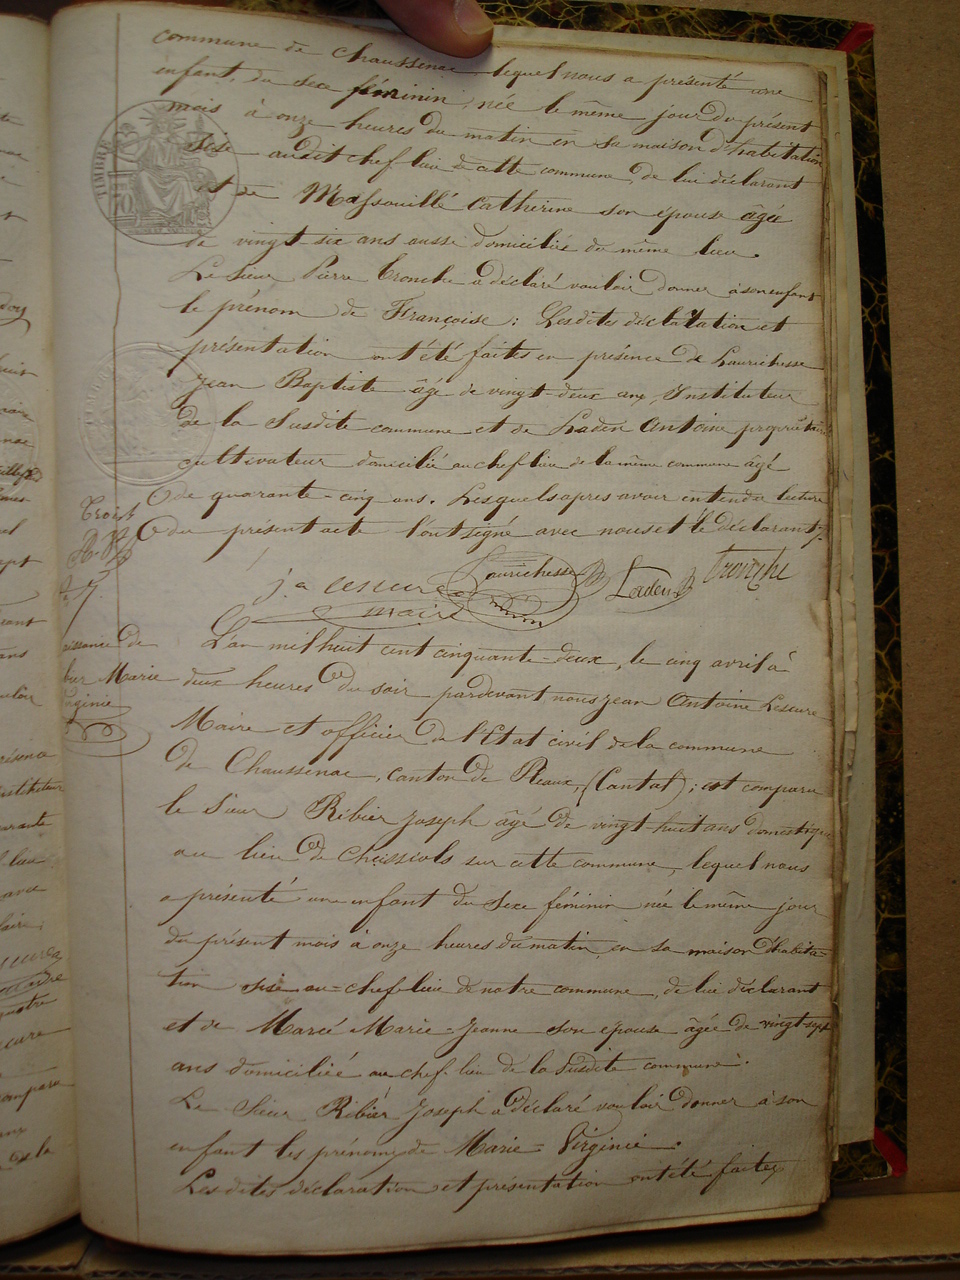 commune de Chaussenac lequel nous a présenté une
enfant, du sexe féminin, née le même jour du présent
mois à onze heures du matin en sa maison d'habitation
sise audit chef lieu de cette commune, de lui déclarant
et de Massouillé Catherine son épouse âgée
de vingt six ans aussi domiciliée du même lieu.
Le Sieur Pierre Tronche a déclaré vouloir donner à son enfant
le prénom de Françoise : Lesdites déclaration et
présentation ont été faites en présence de Laurichesse
Jean Baptiste âgé de vingt-deux ans, Instituteur
de la susdite commune et de Laden Antoine propriétaire
cultivateur domicilié au chef lieu de la même commune âgé
de quarante-cinq ans. Lesquels après avoir entendu lecture
du présent acte l'ont signé avec nous et le déclarant.
j. a Lescure Laurichesse Laden Tronche
maire
TIMBRE
L'an mil huit cent cinquante-deux, le cinq avril à
deux heures du soir pardevant nous Jean Antoine Lescure
Maire et officier de l'Etat civil de la commune
de Chaussenac, canton de Pleaux, (Cantal) ; est comparu
le Sieur Ribier Joseph âgé de vingt-huit ans domestique
au lieu de Cheissiols sur cette commune, lequel nous
a présenté une enfant du sexe féminin née le même jour
du présent mois à onze heures du matin, en sa maison d'habita-
tion sise au chef lieu de notre commune, de lui déclarant
et de Marcé Marie-Jeanne son épouse âgée de vingt-sept
ans domiciliée au chef lieu de la susdite commune.
Le Sieur Ribier Joseph a déclaré vouloir donner à son
enfant les prénoms de Marie-Virginie.
Lesdites déclaration et présentation ont été faites